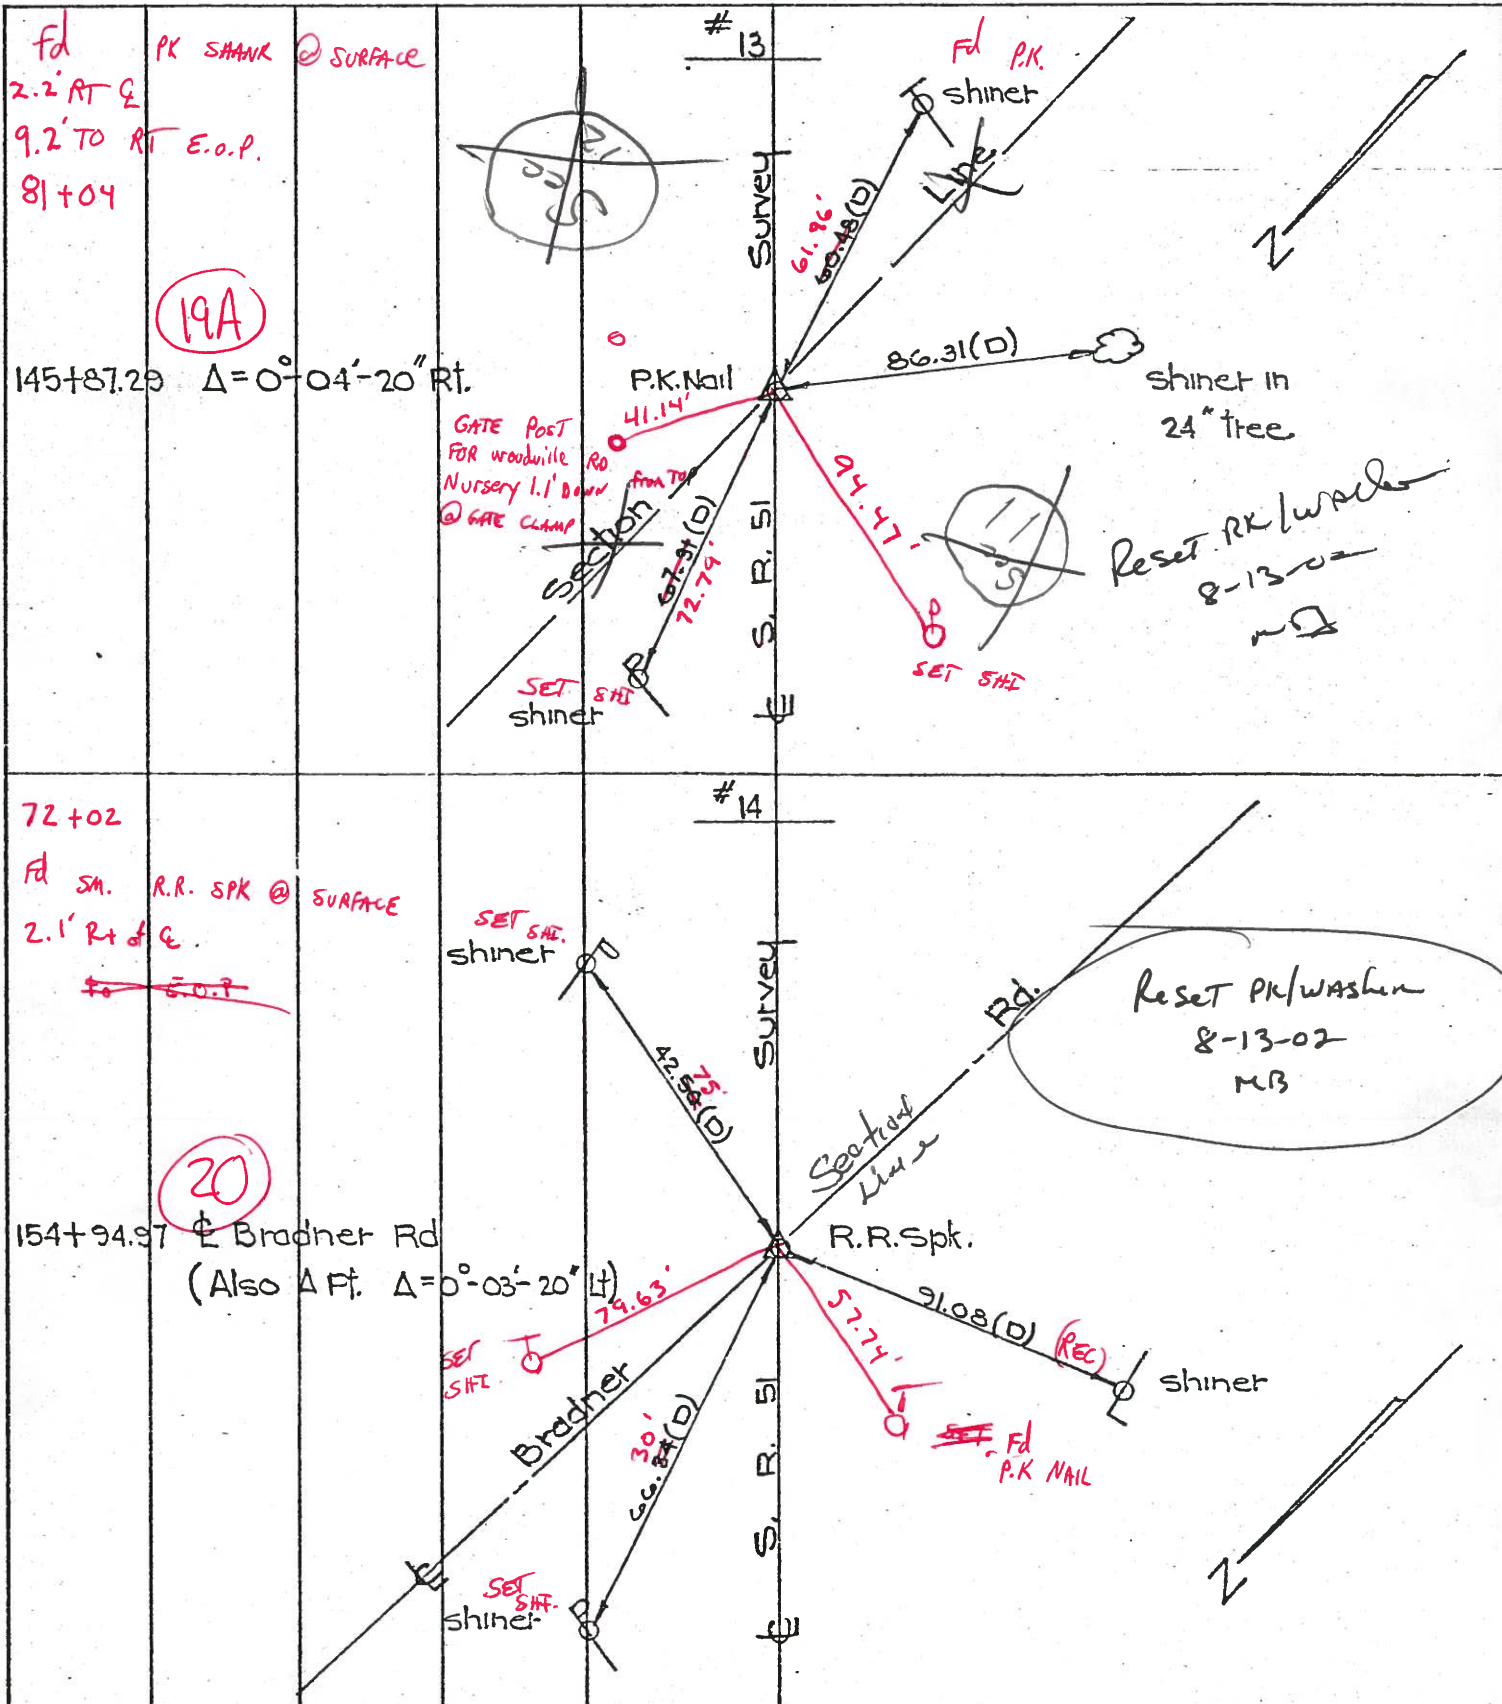 # 13
fd PK SHANK @ SURFACE
2.2' RT ℄
9.2' TO RT E.O.P.
81+04
Fd P.K.
shiner
Survey
Line
61.96'
60.48(D)
N
19A
145+87.29 Δ=0°-04'-20" Rt.
P.K. Nail
86.31(D)
shiner in
24" tree
41.14'
GATE POST
FOR woodville RD
Nursery 1.1' DOWN from TOP
@ GATE CLAMP
Section
67.91(D)
72.79'
S. R. 51
94.47'
11
Reset PK/WAsher
8-13-02
SET SHI
SET SHI
shiner
℄
# 14
72+02
Fd SM. R.R. SPK @ SURFACE
2.1' Rt of ℄.
To E.O.P
SET SHI.
shiner
Survey
Rd.
Reset PK/WAsher
8-13-02
MB
42.50(D)
75'
Section
Line
20
154+94.97 ℄ Bradner Rd
(Also Δ Pt. Δ=0°-03'-20" Lt)
R.R. Spk.
79.63'
57.74'
91.08(D) (REC)
SET
SHI
shiner
Bradner
30'
66.84(D)
S. R. 51
SET Fd
P.K NAIL
N
℄
SET
SHI.
shiner
℄